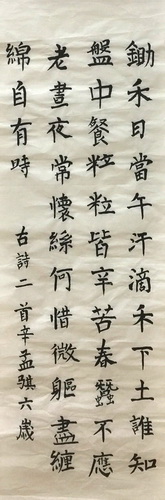 鋤禾日當午汗滴禾下土誰知
盤中餐粒粒皆辛苦春蠶不應
老晝夜常懷絲何惜微軀盡纏
綿自有時 古詩二首辛孟騏六歲